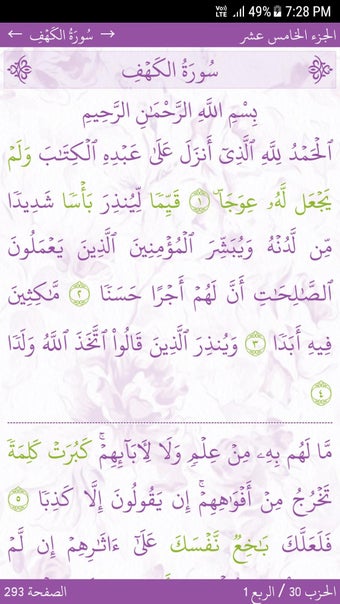 Voo) LTE 49% 7:28 PM
الجزء الخامس عشر → سُورَةُ الكَهۡفِ ←
سُورَةُ الكَهۡفِ
بِسۡمِ اللَّهِ الرَّحۡمَٰنِ الرَّحِيمِ
ٱلۡحَمۡدُ لِلَّهِ ٱلَّذِيٓ أَنزَلَ عَلَىٰ عَبۡدِهِ ٱلۡكِتَٰبَ وَلَمۡ
يَجۡعَل لَّهُۥ عِوَجَاۜ ١ قَيِّمٗا لِّيُنذِرَ بَأۡسٗا شَدِيدٗا
مِّن لَّدُنۡهُ وَيُبَشِّرَ ٱلۡمُؤۡمِنِينَ ٱلَّذِينَ يَعۡمَلُونَ
ٱلصَّٰلِحَٰتِ أَنَّ لَهُمۡ أَجۡرًا حَسَنٗا ٢ مَّٰكِثِينَ
فِيهِ أَبَدٗا ٣ وَيُنذِرَ ٱلَّذِينَ قَالُواْ ٱتَّخَذَ ٱللَّهُ وَلَدٗا
٤
مَّا لَهُم بِهِۦ مِنۡ عِلۡمٖ وَلَا لِأٓبَآئِهِمۡۚ كَبُرَتۡ كَلِمَةٗ
تَخۡرُجُ مِنۡ أَفۡوَٰهِهِمۡۚ إِن يَقُولُونَ إِلَّا كَذِبٗا ٥
فَلَعَلَّكَ بَٰخِعٞ نَّفۡسَكَ عَلَىٰٓ ءَاثَٰرِهِمۡ إِن لَّمۡ
الحزب 30 / الربع 1 الصفحة 293